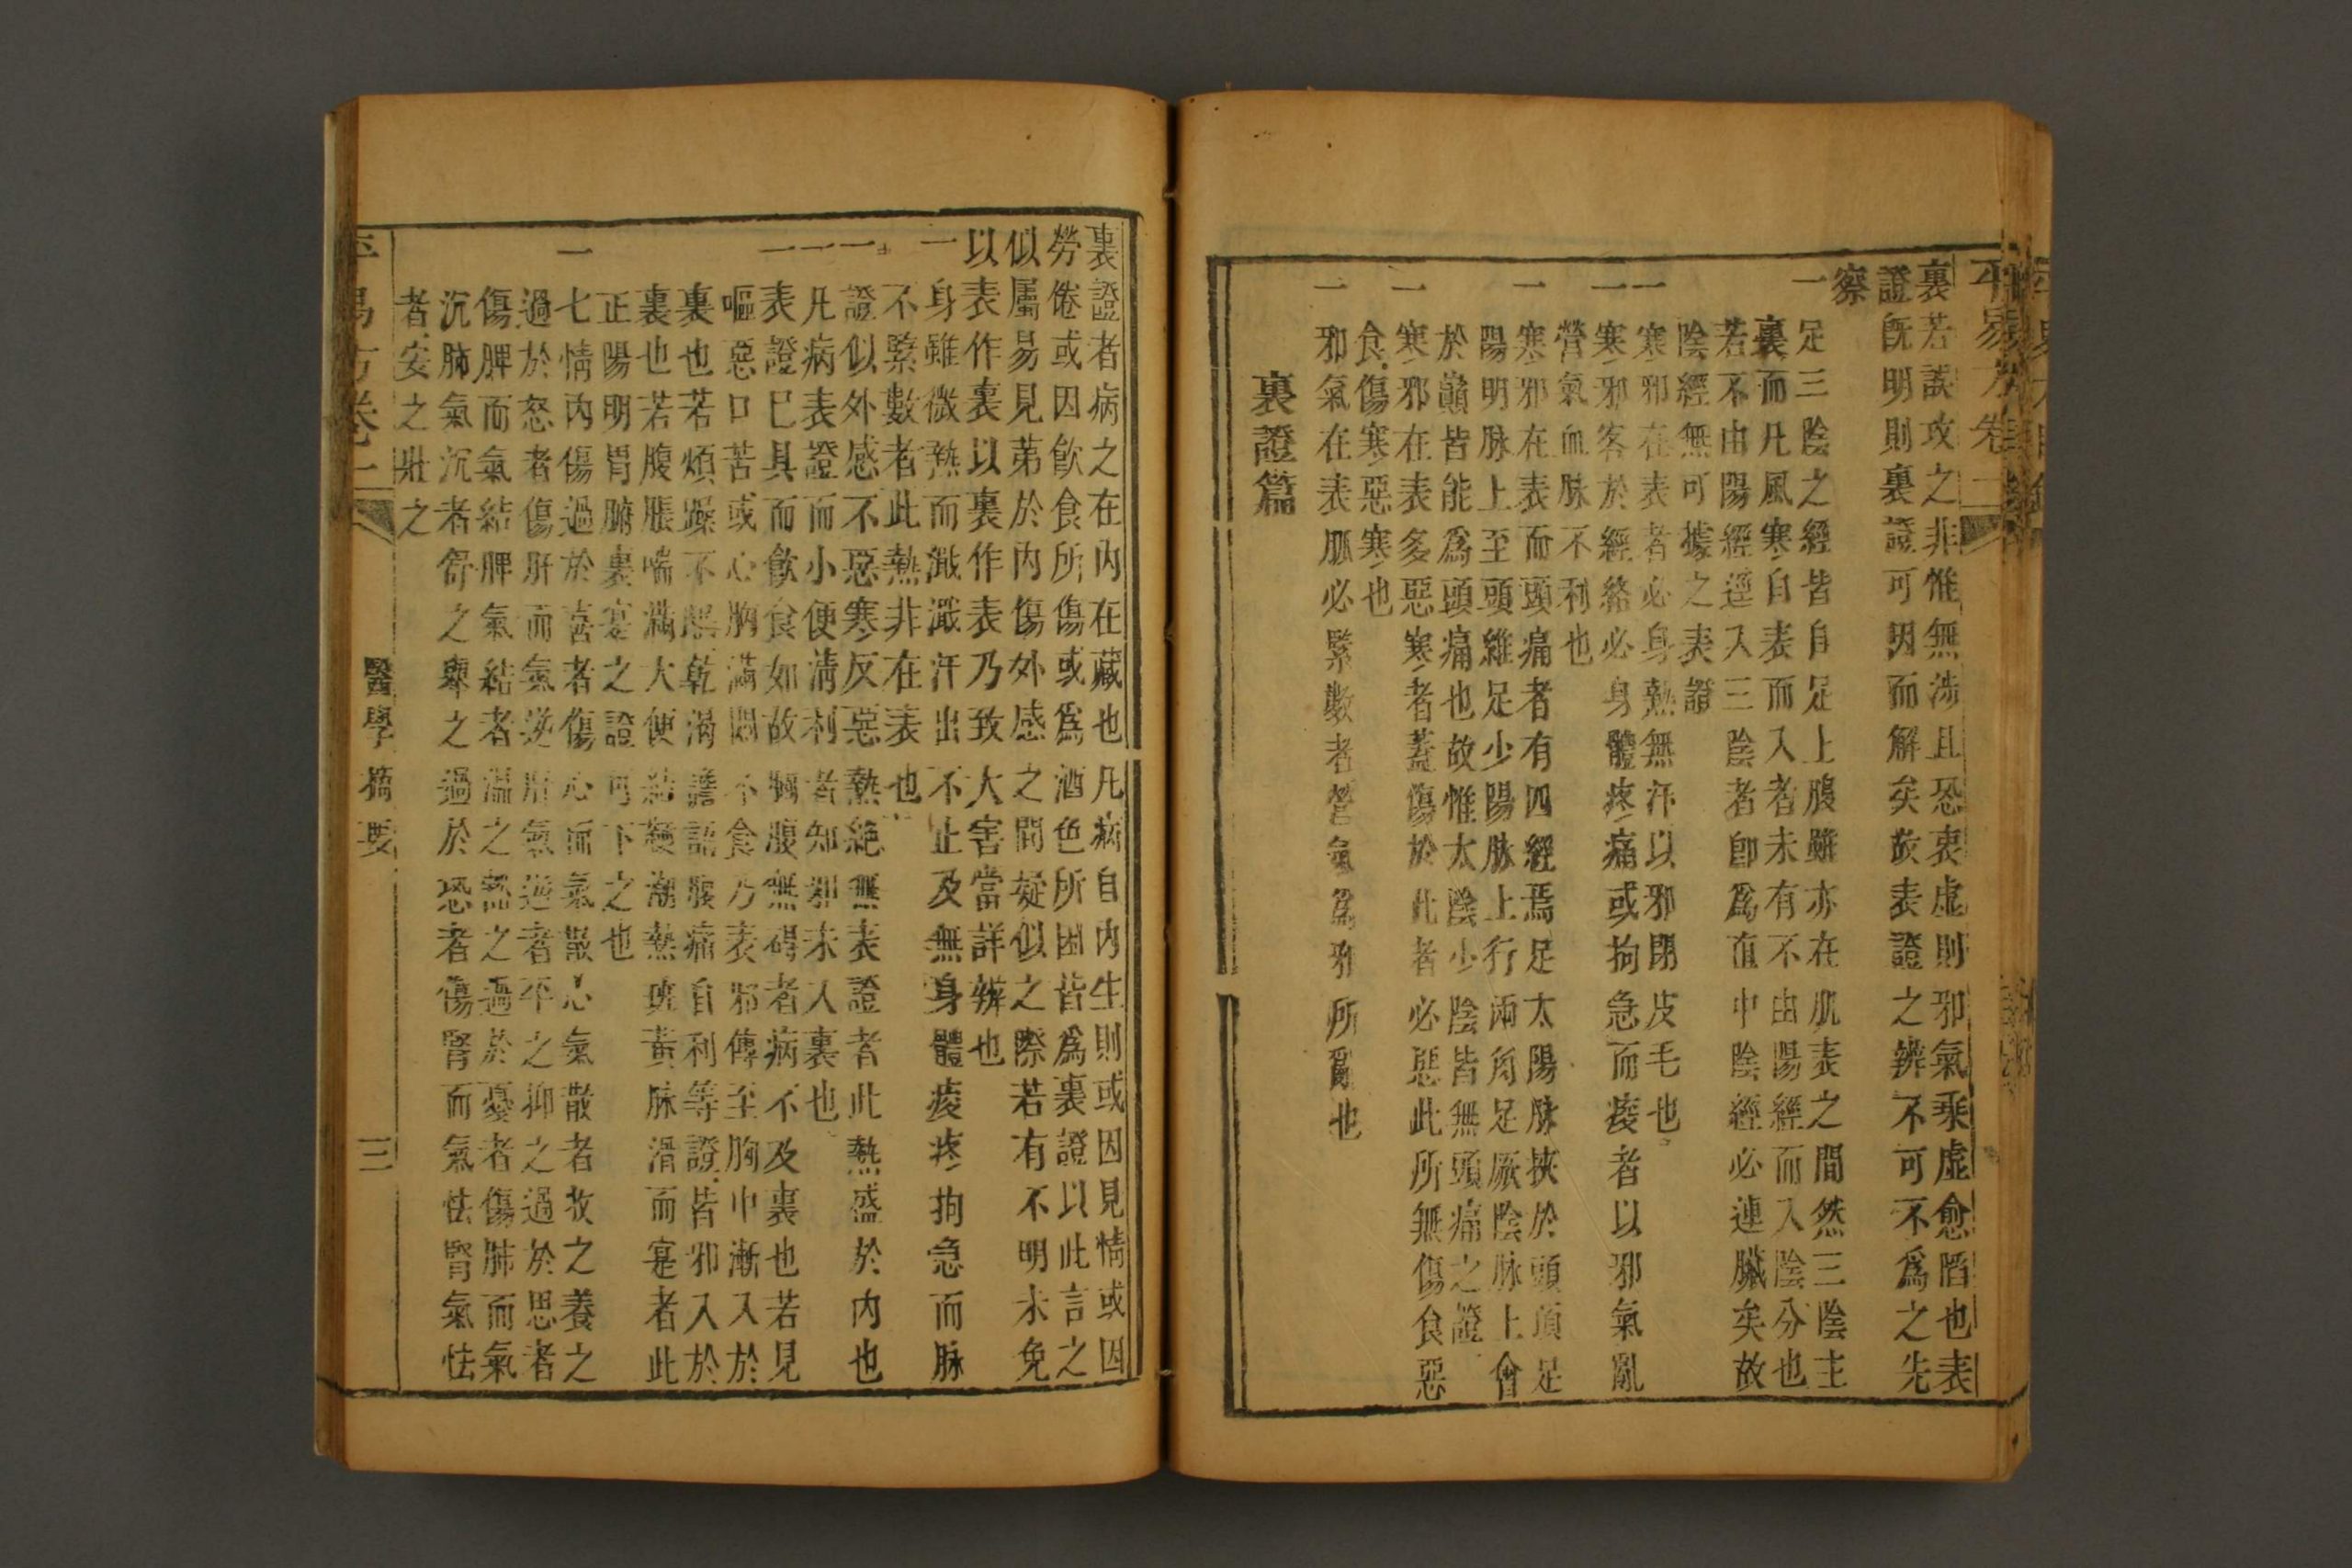 平易方卷二
裏若誤攻之非惟無涉且恐衷虛則邪氣乘虛愈陷也表
證既明則裏證可因而解矣故表證之辨不可不爲之先
察
一足三陰之經皆自足上腹雖亦在肌表之間然三陰主
裏而凡風寒自表而入者未有不由陽經而入陰分也
若不由陽經逕入三陰者卽爲直中陰經必連臟矣故
陰經無可據之表證
一寒邪在表者必身熱無汗以邪閉皮毛也
一寒邪客於經絡必身體疼痛或拘急而痠者以邪氣亂
營氣血脉不利也
一寒邪在表而頭痛者有四經焉足太陽脉挾於頭頂足
陽明脉上至頭維足少陽脉上行兩角足厥陰脉上會
於巔皆能爲頭痛也故惟太陰少陰皆無頭痛之證
一寒邪在表多惡寒者蓋傷於此者必惡此所無傷食惡
食傷寒惡寒也
一邪氣在表脈必緊數者營氣爲邪所亂也
裏證篇
裏證者病之在內在藏也凡病自內生則或因見情或因
勞倦或因飲食所傷或爲酒色所困皆爲裏證以此言之
似屬易見第於內傷外感之間疑似之際若有不明未免
以表作裏以裏作表乃致大害當詳辨也
一身雖微熱而濈濈汗出不止及無身體痠疼拘急而脉
不緊數者此熱非在表也
一證似外感不惡寒反惡熱絶無表證者此熱盛於內也
一凡病表證而小便清利者知邪未入裏也
一表證已具而飲食如故胸腹無碍者病不及裏也若見
嘔惡口苦或心胸滿悶不食乃表邪傳至胸中漸入於
裏也若煩躁不眠乾渴譫語腹痛自利等證皆邪入於
裏也若腹脹喘滿大便結硬潮熱斑黃脉滑而寔者此
正陽明胃腑裏寔之證可下之也
一七情內傷過於喜者傷心而氣散心氣散者收之養之
過於怒者傷肝而氣逆肝氣逆者平之抑之過於思者
傷脾而氣結脾氣結者温之豁之過於憂者傷肺而氣
沉肺氣沉者舒之舉之過於恐者傷腎而氣怯腎氣怯
者安之壯之
平易方卷二
醫學摘要
三